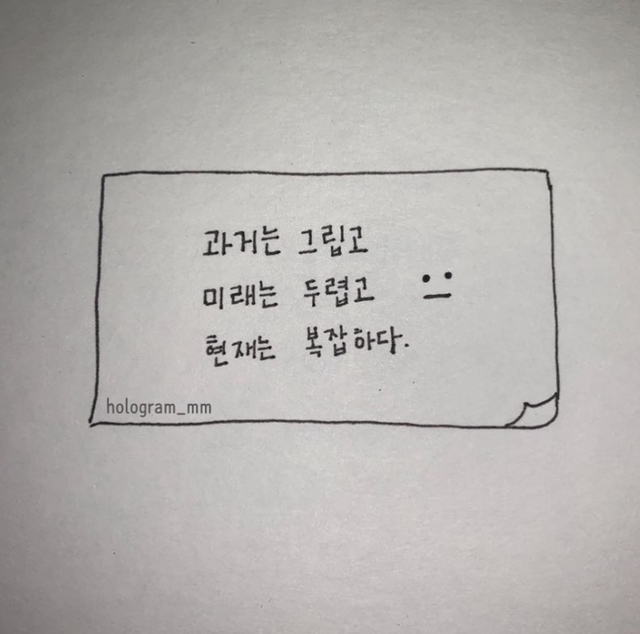 과거는 그립고
미래는 두렵고
현재는 복잡하다.
hologram_mm